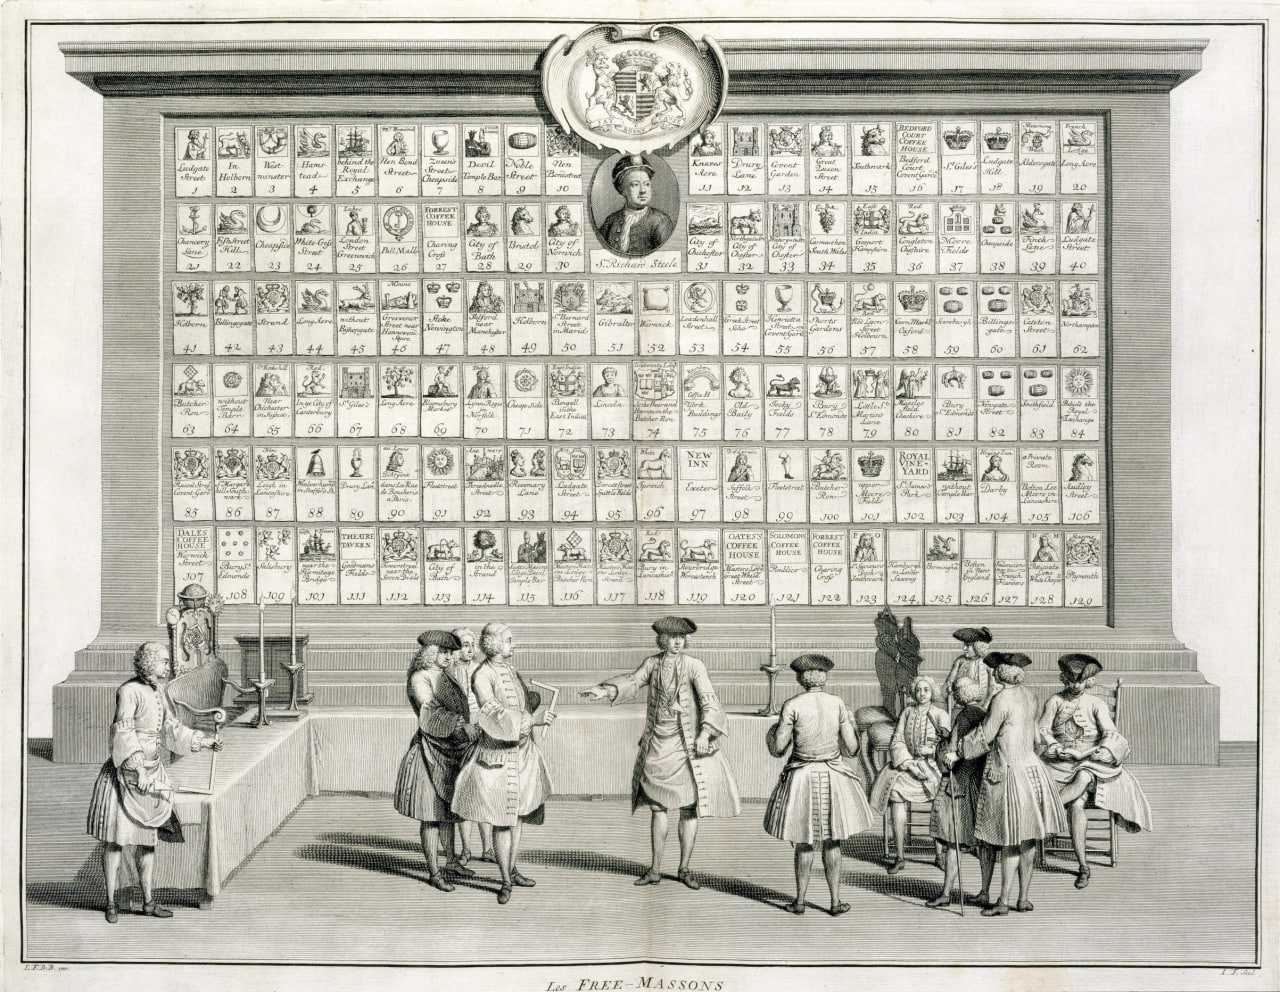 Ludgate Street
In Holborn 2
West-minster 3
Hams-tead 4
behind the Royal Exchange 5
Hen Bond Street 6
Queen Street Cheapside 7
Devil Temple Bar 8
Noble Street 9
10
Knaves Acre 11
Drury Lane 12
Covent Garden 13
Great Queen Street 14
Southwark 15
BEDFORD COURT COFFEE HOUSE Bedford Court Covent Gard. 16
St. Giles's 17
Ludgate Hill 18
Aldersgate 19
Long Acre 20
Chancery Lane 21
Fish Street Hill 22
Cheapside 23
White Cross Street 24
London Street Greenwich 25
Pall Mall 26
FORREST COFFEE HOUSE Charing Cross 27
City of Bath 28
Bristol 29
City of Norwich 30
Sr. Richard Steele
City of Chichester 31
City of Chester 32
City of Chester 33
Carmarthen South Wales 34
Gosport Hampshire 35
Congleton Cheshire 36
Moore Fields 37
Cheapside 38
Finch Lane 39
Ludgate Street 40
Holborn 41
Billingsgate 42
Strand 43
Long Acre 44
without Bishopsgate 45
Grosvenor Street near Hannover Square 46
Stoke Newington 47
Salford near Manchester 48
Holborn 49
St. Bernard Street in Madrid 50
Gibraltar 51
Warwick 52
Leadenhall Street 53
Greek Street Soho 54
Henrietta Street Covent Gard. 55
Shorts Gardens 56
Red Lyon Street Holbourn 57
Corn Markt. Oxford 58
Scarburgh 59
Billingsgate 60
Catsten Street 61
Northampton 62
Butcher Row 63
without Temple Barr 64
Near Chichester in Sussex 65
In ye City of Canterbury 66
St. Giles 67
Long Acre 68
Bloomsbury Market 69
Lynn Regis Norfolk 70
Cheap Side 71
Bengall in the East Indias 72
Lincoln 73
74
Coffee H. York Buildings 75
Old Baily 76
Jocky Fields 77
Bury St. Edmonds 78
Little St. Martins Lane 79
Macclesfield Cheshire 80
Bury St. Edmonds 81
Newgate Street 82
Smithfield 83
Behind the Royal Exchange 84
Covent Gard. 85
St. Margarets hill Southwark 86
Leigh in Lancashire 87
88
Drury Lan 89
dans La Rue de Boucherie à Paris 90
Fleetstreet 91
Threadneedle Street 92
Rosemary Lane 93
Ludgate Street 94
Spittle Fields 95
Ipswich 96
NEW INN Exeter 97
Suffolk Street 98
Fleetstreet 99
Butcher Row 100
upper Moore Field 101
ROYAL VINE-YARD St. James's Park 102
without Temple Bar 103
Darby 104
a Private Room Bolton Lee Moore in Lancashire 105
Audley Street 106
DALES COFFEE HOUSE Warwick Street 107
Bury St. Edmonds 108
Salisbury 109
near the Hermitage Bridge 101
THEATRE TAVERN Goodmans Fields 111
Towerstreet near the Seven Dials 112
City of Bath 113
in the Strand 114
Temple Bar 115
Butcher Row 116
117
Bury in Lancashire 118
Stourbridge Worcestersh. 119
OATES'S COFFEE HOUSE Masters Lodge Great Wheld Street 120
SOLOMONS COFFEE HOUSE 121
FORREST COFFEE HOUSE Charing Cross 122
Southwark 123
Hamburgh in Lower Saxony 124
Birmingh. 125
Boston in New England 126
Valenciennes in French Flanders 127
128
Plymouth 129
I. F. B. B.
Les FREE-MASSONS